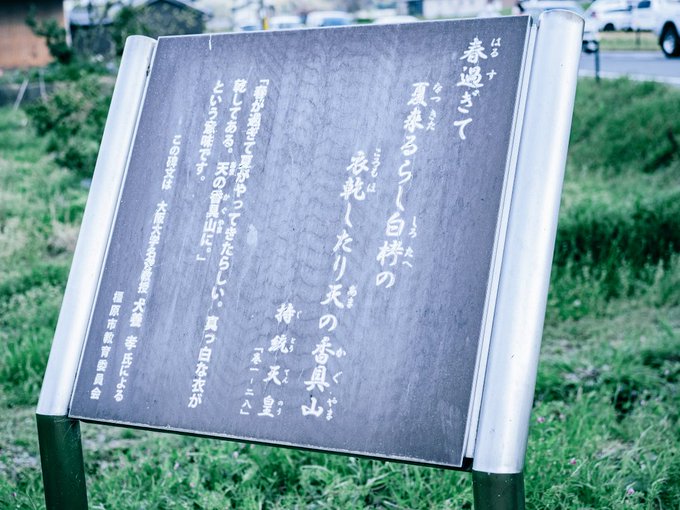 春過ぎて
夏来るらし白栲の
衣乾したり天の香具山
持統天皇
「巻一-二八」
「春が過ぎて夏がやってきたらしい。真っ白な衣が
乾してある。天の香具山に。」
という意味です。
この碑文は 大阪大学名誉教授 犬養 孝氏による
橿原市教育委員会